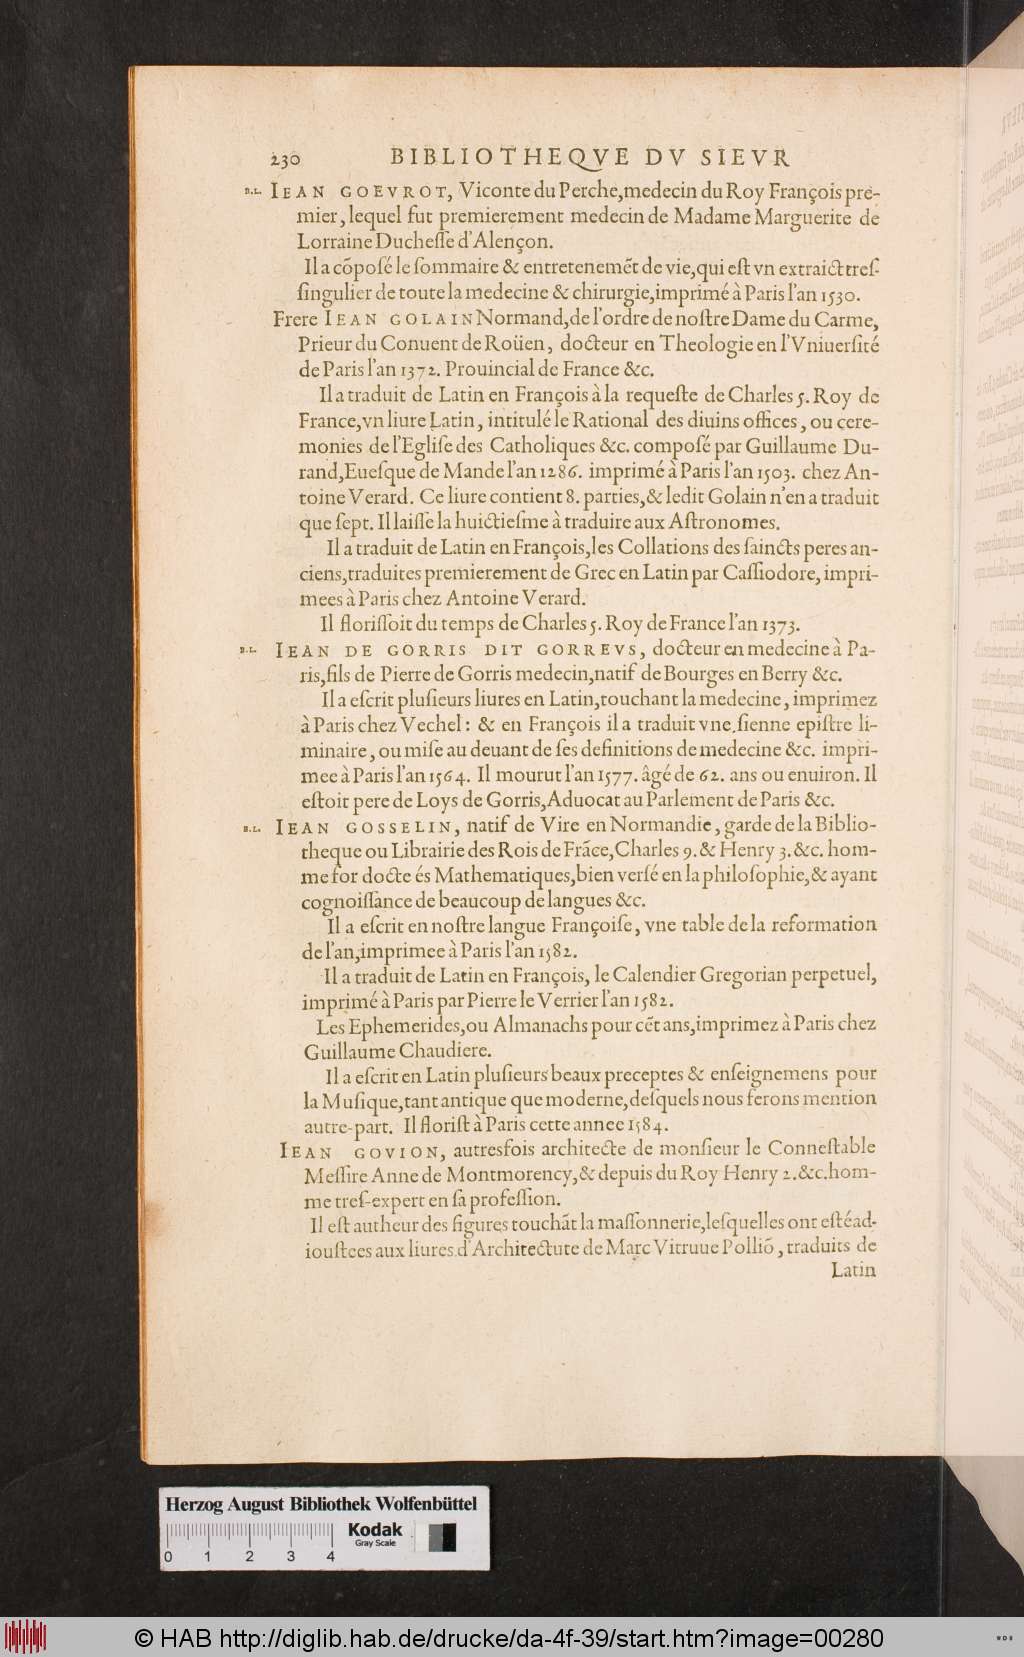 230 BIBLIOTHEQVE DV SIEVR
B.L. IEAN GOEVROT, Viconte du Perche, medecin du Roy François pre-
mier, lequel fut premierement medecin de Madame Marguerite de
Lorraine Ducheſſe d'Alençon.
Il a cõpoſé le ſommaire & entretenemẽt de vie, qui eſt vn extraict treſ-
ſingulier de toute la medecine & chirurgie, imprimé à Paris l'an 1530.
Frere IEAN GOLAIN Normand, de l'ordre de noſtre Dame du Carme,
Prieur du Conuent de Roüen, docteur en Theologie en l'Vniuerſité
de Paris l'an 1372. Prouincial de France &c.
Il a traduit de Latin en François à la requeſte de Charles 5. Roy de
France, vn liure Latin, intitulé le Rational des diuins offices, ou cere-
monies de l'Egliſe des Catholiques &c. compoſé par Guillaume Du-
rand, Eueſque de Mande l'an 1286. imprimé à Paris l'an 1503. chez An-
toine Verard. Ce liure contient 8. parties, & ledit Golain n'en a traduit
que ſept. Il laiſſe la huictieſme à traduire aux Aſtronomes.
Il a traduit de Latin en François, les Collations des ſaincts peres an-
ciens, traduites premierement de Grec en Latin par Caſſiodore, impri-
mees à Paris chez Antoine Verard.
Il floriſſoit du temps de Charles 5. Roy de France l'an 1373.
B.L. IEAN DE GORRIS DIT GORREVS, docteur en medecine à Pa-
ris, fils de Pierre de Gorris medecin, natif de Bourges en Berry &c.
Il a eſcrit pluſieurs liures en Latin, touchant la medecine, imprimez
à Paris chez Vechel: & en François il a traduit vne ſienne epiſtre li-
minaire, ou miſe au deuant de ſes definitions de medecine &c. impri-
mee à Paris l'an 1564. Il mourut l'an 1577. âgé de 62. ans ou enuiron. Il
eſtoit pere de Loys de Gorris, Aduocat au Parlement de Paris &c.
B.L. IEAN GOSSELIN, natif de Vire en Normandie, garde de la Biblio-
theque ou Librairie des Rois de Frãce, Charles 9. & Henry 3. &c. hom-
me for docte és Mathematiques, bien verſé en la philoſophie, & ayant
cognoiſſance de beaucoup de langues &c.
Il a eſcrit en noſtre langue Françoiſe, vne table de la reformation
de l'an, imprimee à Paris l'an 1582.
Il a traduit de Latin en François, le Calendier Gregorian perpetuel,
imprimé à Paris par Pierre le Verrier l'an 1582.
Les Ephemerides, ou Almanachs pour cẽt ans, imprimez à Paris chez
Guillaume Chaudiere.
Il a eſcrit en Latin pluſieurs beaux preceptes & enſeignemens pour
la Muſique, tant antique que moderne, deſquels nous ferons mention
autre-part. Il floriſt à Paris cette annee 1584.
IEAN GOVION, autresfois architecte de monſieur le Conneſtable
Meſſire Anne de Montmorency, & depuis du Roy Henry 2. &c. hom-
me treſ-expert en ſa profeſſion.
Il eſt autheur des figures touchãt la maſſonnerie, leſquelles ont eſté ad-
iouſtees aux liures d'Architecture de Marc Vitruue Polliõ, traduits de
Latin
Herzog August Bibliothek Wolfenbüttel
Kodak
Gray Scale
0 1 2 3 4
© HAB http://diglib.hab.de/drucke/da-4f-39/start.htm?image=00280